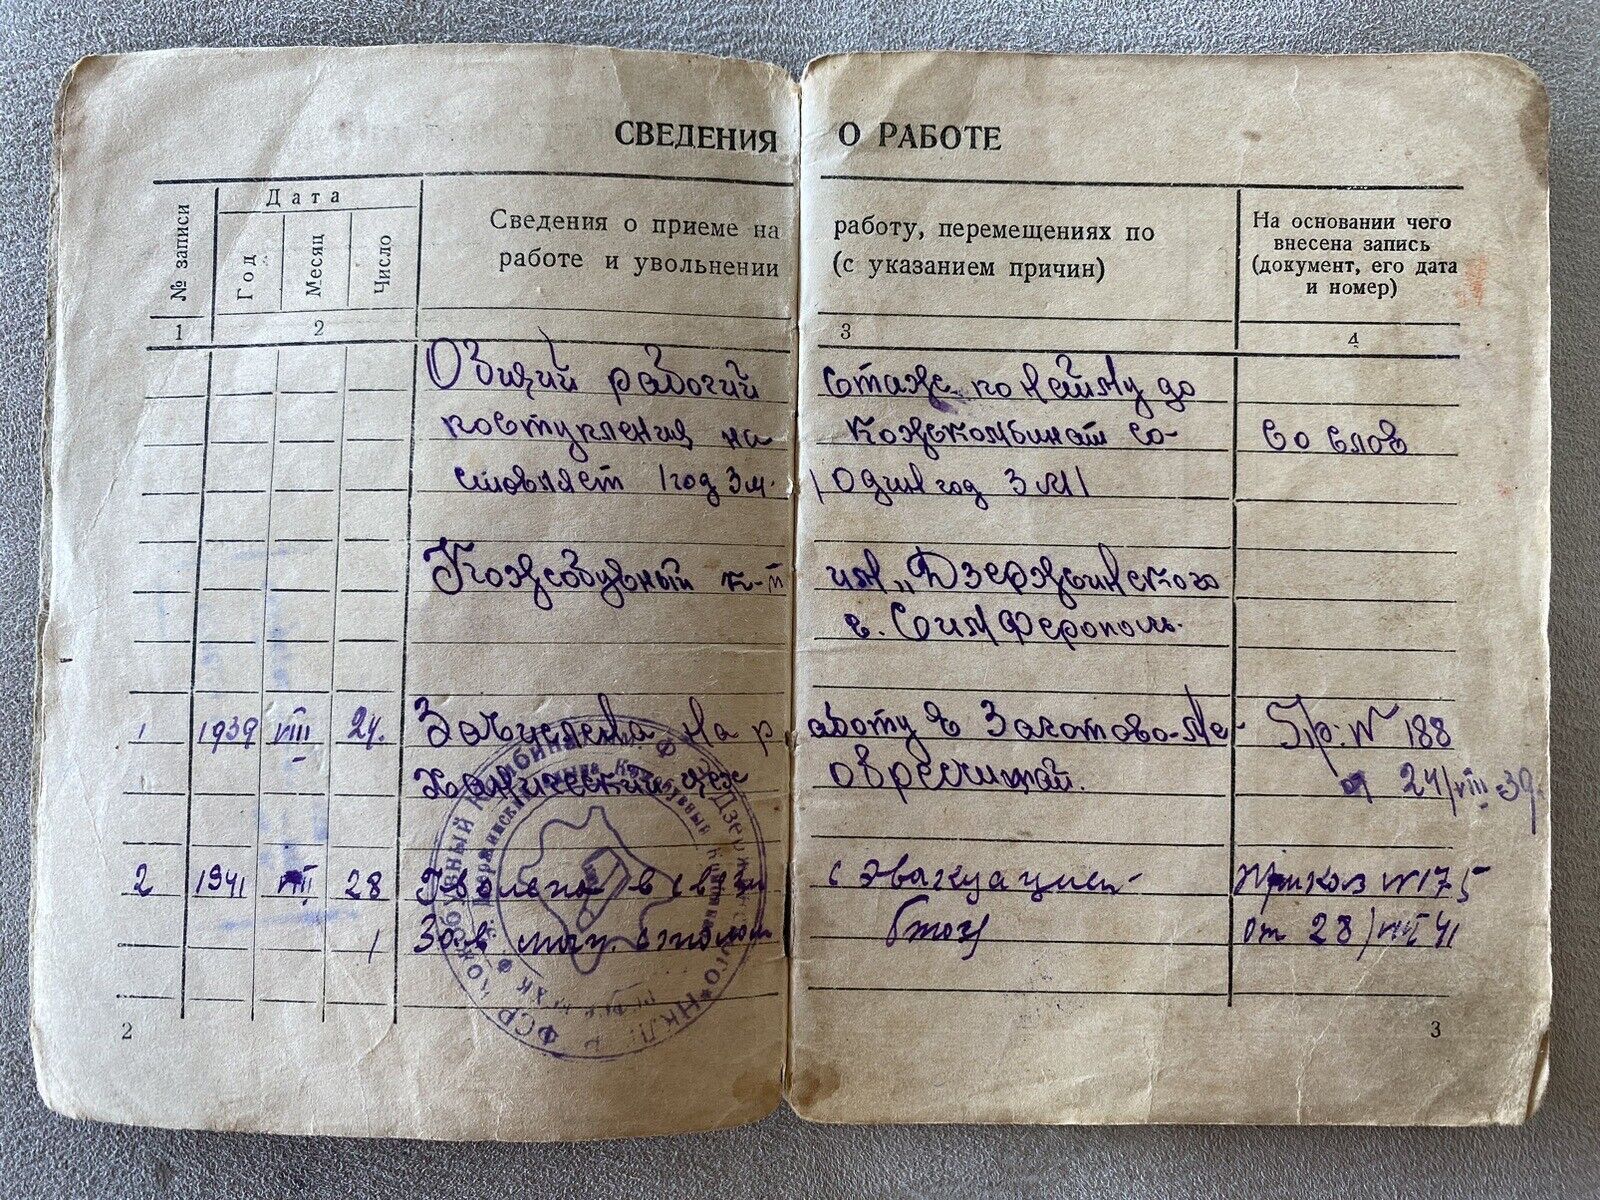 СВЕДЕНИЯ О РАБОТЕ
№ записи
Дата
Год
Месяц
Число
Сведения о приеме на работу, перемещениях по
работе и увольнении (с указанием причин)
На основании чего
внесена запись
(документ, его дата
и номер)
1 2 3 4
Общий рабочий стаж по найму до
поступления на кожкомбинат со- со слов
ставляет 1 год 3 м. (Один год 3 м)
Кожобувный к-т им „Дзержинского
г. Симферополь.
1 1939 VIII 24. Зачислена на работу в Заготово-Ме- Пр: № 188
ханический цех обрезчицей. от 24/VIII-39.
2 1941 VIII 28 Уволена в связи с эвакуацией Приказ № 175
Зав. от 28/VIII 41
2
3